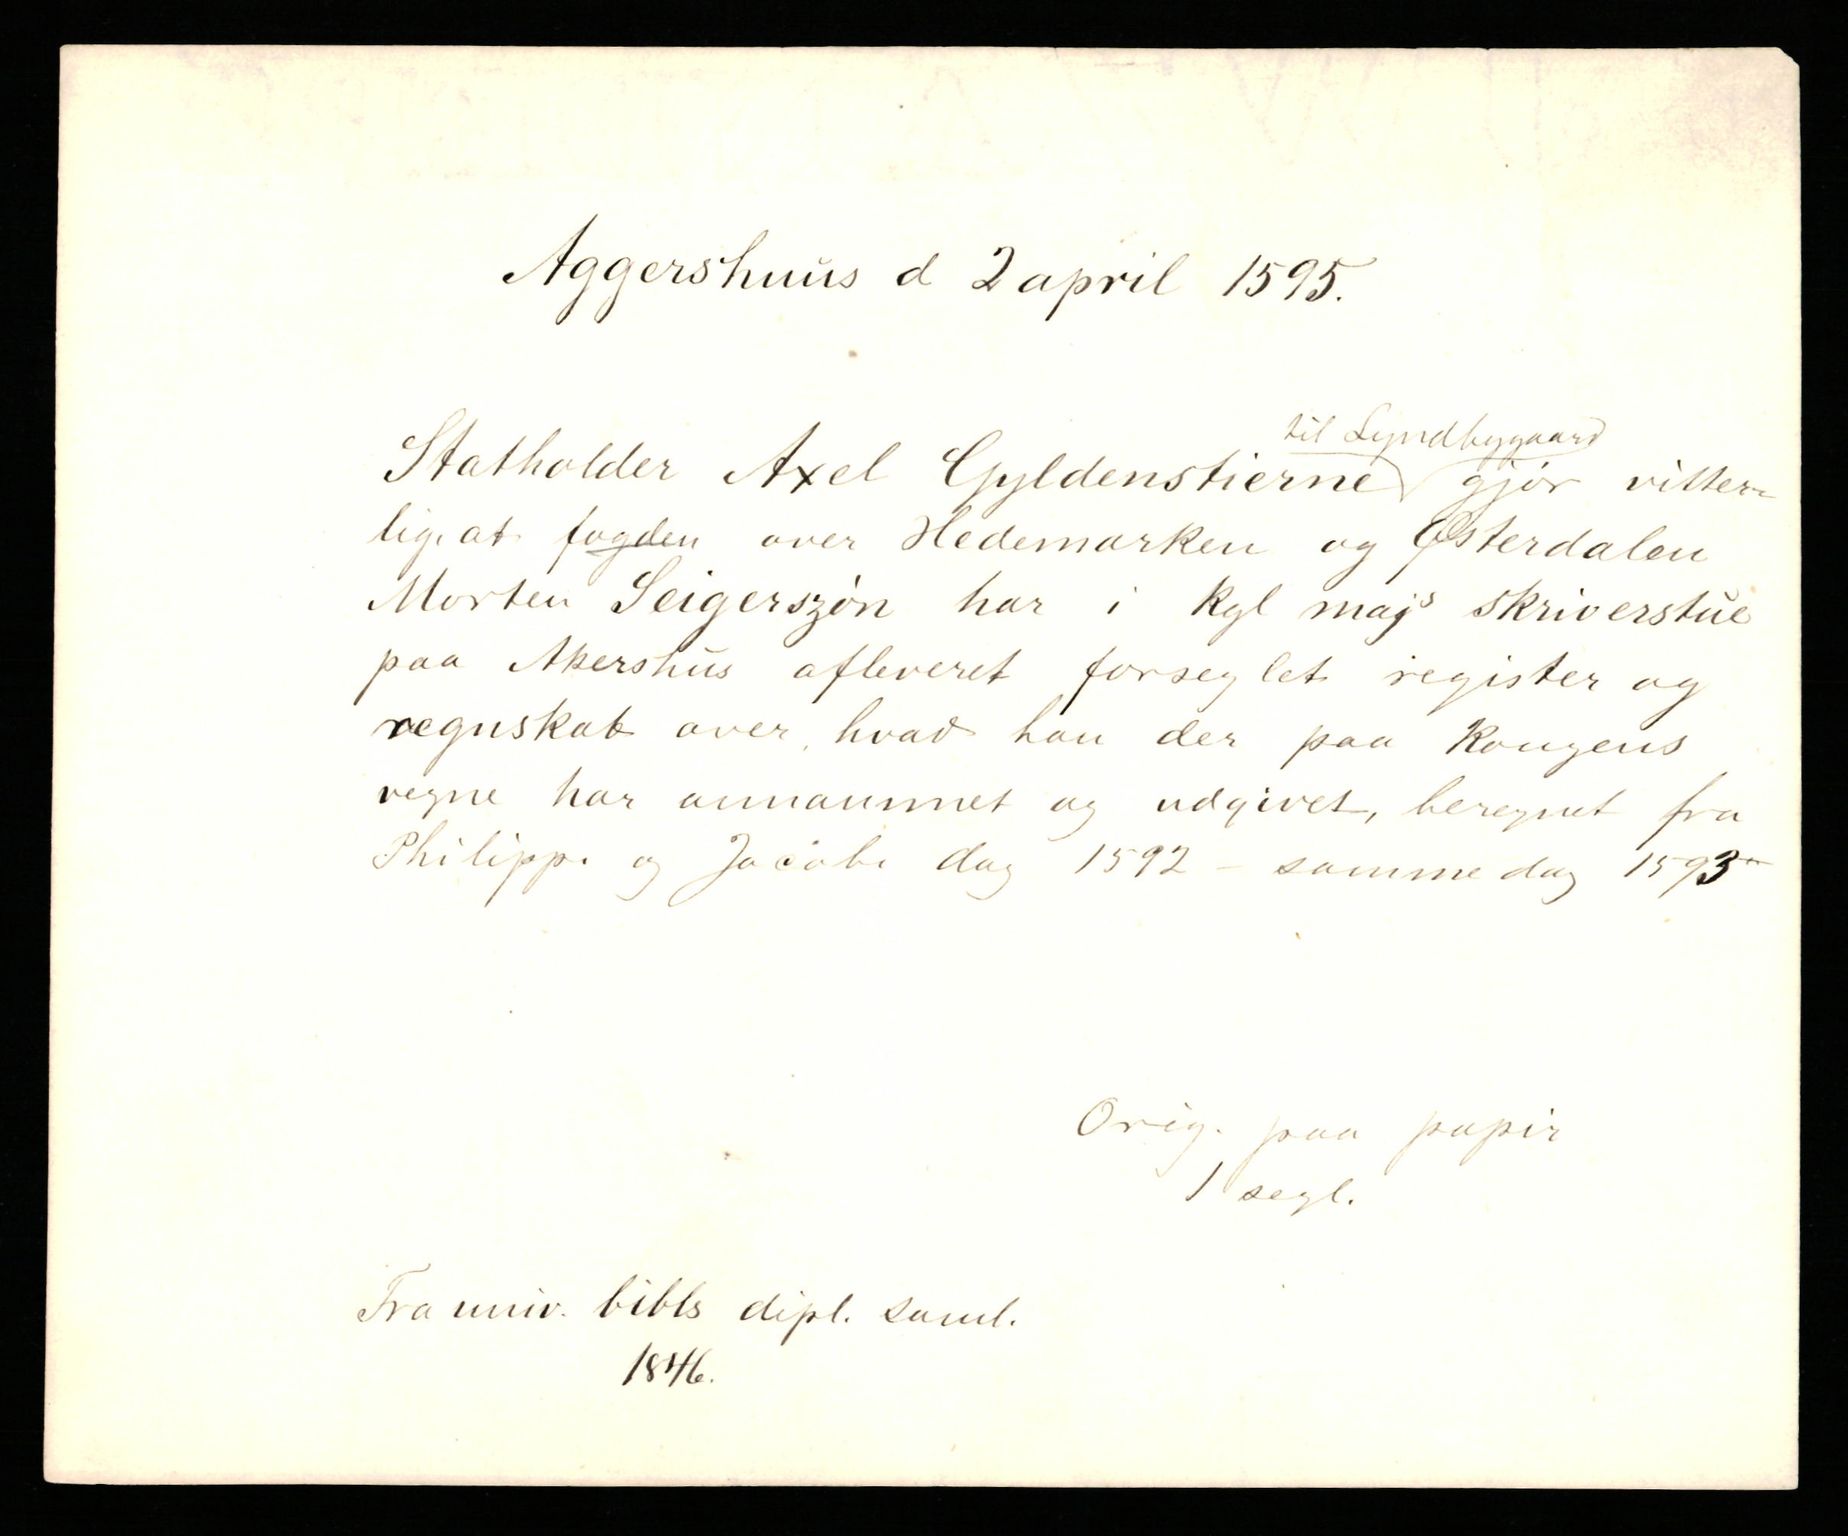 Aggershuus d 2 april 1595.
til Lyndbygaard
Statholder Axel Gyldenstierne gjør vitter-
lig, at fogden over Hedemarken og Østerdalen
Morten Seigerszøn har i kgl majs skriverstue
paa Akershus afleveret forseglet register og
regnskab over, hvad han der paa kongens
vegne har annammet og udgivet, beregnet fra
Philippi og Jacobi dag 1592 - samme dag 1593
Orig. paa papir
1 segl.
Fra univ. bibls dipl. saml.
1846.